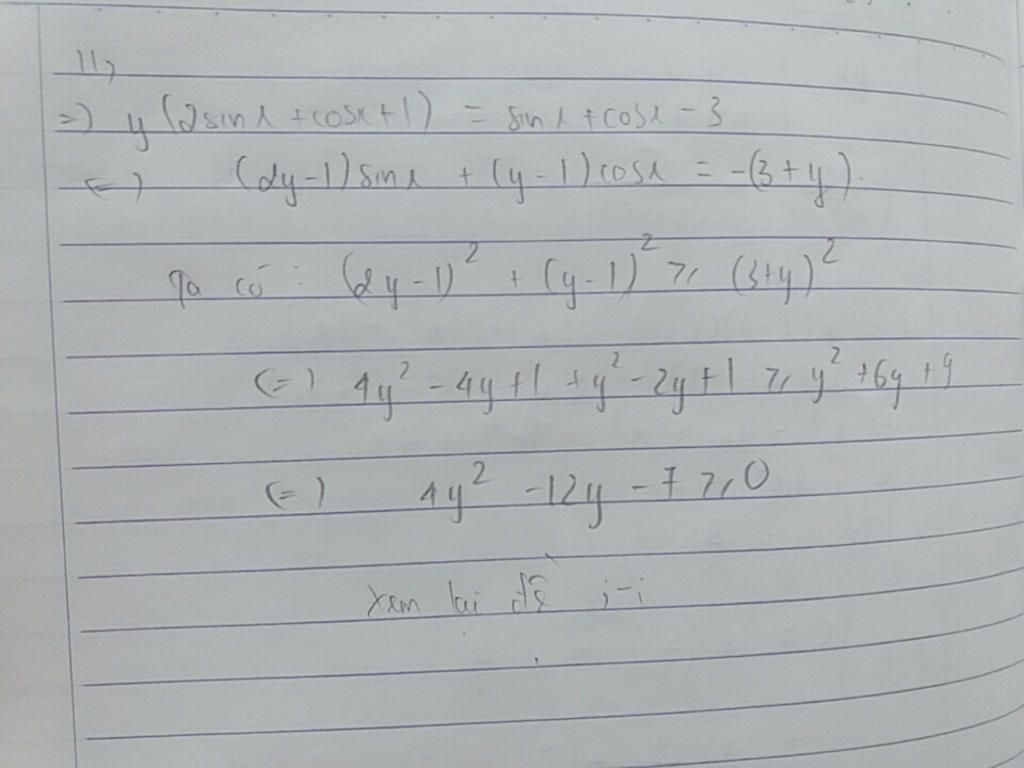 11,
=) y (2sinx + cosx + 1) = sinx + cosx - 3
(=) (2y-1) sinx + (y-1) cosx = -(3+y).
Ta có : (2y-1)² + (y-1)² ⩾ (3+y)²
(=) 4y² - 4y + 1 + y² - 2y + 1 ⩾ y² + 6y + 9
(=) 4y² - 12y - 7 ⩾ 0
Xem lại đề i-i